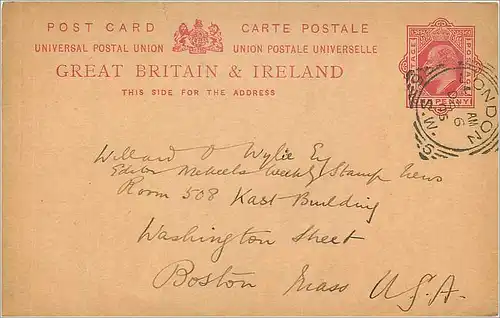 POST CARD CARTE POSTALE
UNIVERSAL POSTAL UNION UNION POSTALE UNIVERSELLE
GREAT BRITAIN & IRELAND
THIS SIDE FOR THE ADDRESS
POSTAGE
PENNY
LONDON
AM
6
S.W.
Willard O Wylie Ey
Editor Mekeels Weekly Stamp News
Room 508 East Building
Washington Street
Boston Mass U.S.A.